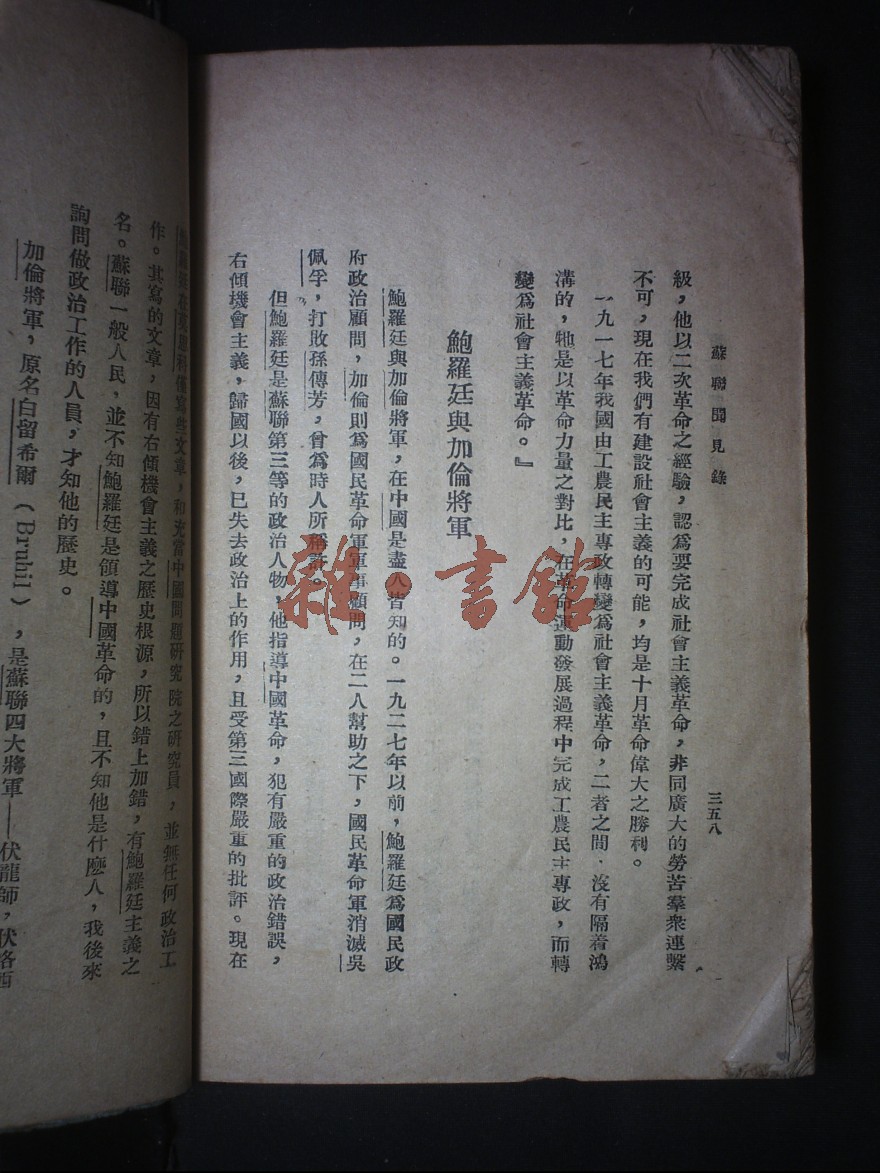 蘇聯聞見錄
三五八
級，他以二次革命之經驗，認爲要完成社會主義革命，非同廣大的勞苦羣衆連繫
不可，現在我們有建設社會主義的可能，均是十月革命偉大之勝利。
一九一七年我國由工農民主專政轉變爲社會主義革命，二者之間．沒有隔着鴻
溝的，牠是以革命力量之對比，在革命運動發展過程中完成工農民主專政，而轉
變爲社會主義革命。』
鮑羅廷與加倫將軍
鮑羅廷與加倫將軍，在中國是盡人皆知的。一九二七年以前，鮑羅廷爲國民政
府政治顧問，加倫則爲國民革命軍軍事顧問，在二人幫助之下，國民革命軍消滅吳
佩孚，打敗孫傳芳，曾爲時人所稱許。
但鮑羅廷是蘇聯第三等的政治人物，他指導中國革命，犯有嚴重的政治錯誤，
右傾機會主義，歸國以後，已失去政治上的作用，且受第三國際嚴重的批評。現在
寫些文章，和充當中國問題研究院之研究員，並無任何政治工
作。其寫的文章，因有右傾機會主義之歷史根源，所以錯上加錯，有鮑羅廷主義之
名。蘇聯一般人民，並不知鮑羅廷是領導中國革命的，且不知他是什麽人，我後來
詢問做政治工作的人員，才知他的歷史。
加倫將軍，原名白留希爾（Bruhil），是蘇聯四大將軍——伏龍師，伏洛西
雜·書館